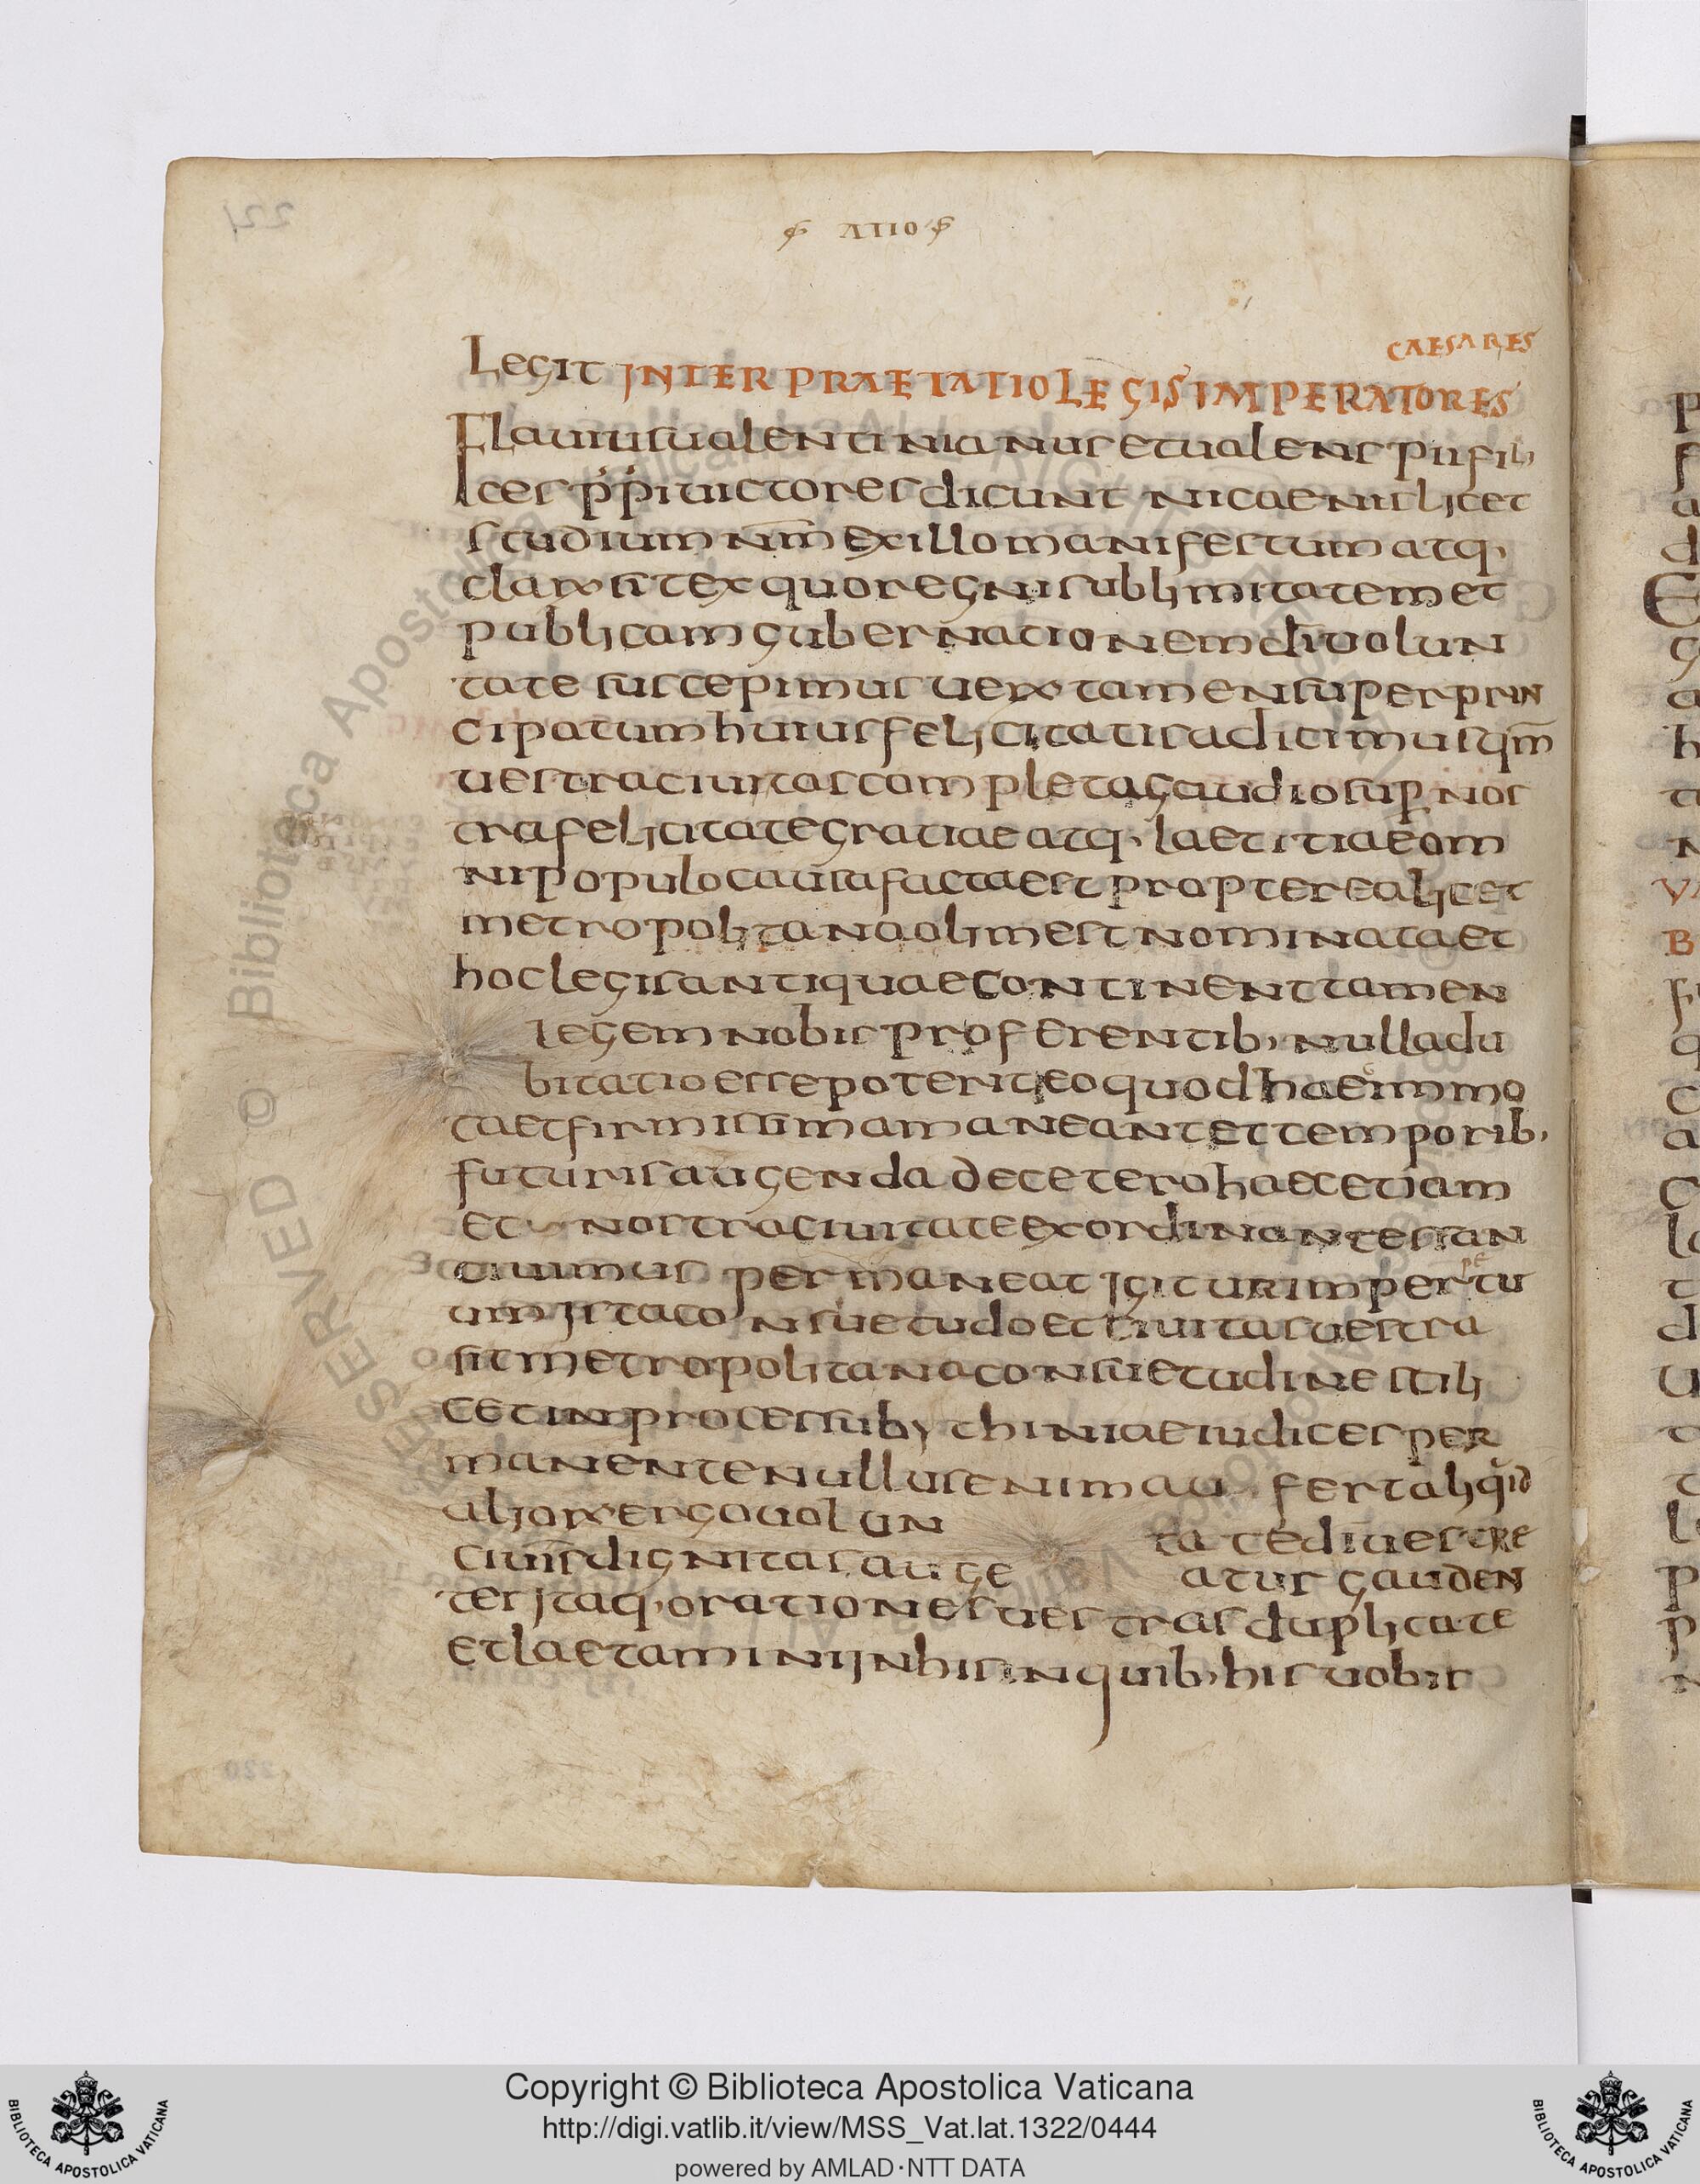 ATIO
CAESARES
Legit INTERPRAETATIO LEGIS IMPERATORES
Flauius ualentinianus et ualens pii fili
ces p̄p̄i uictores dicunt nicaenis licet
studium nm̄ ex illo manifestum atq,
claro sit ex quo regni sublimitatem et
publicam gubernationem dī uolun
tate suscepimus uero tamen super prin
cipatum huius felicitatis adicimus qm̄
uestra ciuitas completa gaudio sup nos
tra felicitate gratiae atq, laetitiae om
ni populo causa facta est propterea licet
metropolitana olim est nominata et
hoc legis antiquae continent tamen
legem nobis proferentib, nulla du
bitatio esse poterit eo quod haec inmo
ta et firmissima maneant et temporib,
futuris augenda de cetero haec etiam
et nostra ciuitate ex ordinante san
ciuimus permaneat igitur imperpetu
um ista consuetudo et ciuitas uestra
sit metropolitana consuetudine stili
cet in processu bythiniae iudices per
manente nullus enim aufert aliqid
aliorx ergo uolun tate dī uestre
ciuīs dignitas auge atur gauden
tes itaq, orationes uestras duplicate
et laetamini in his in quib, his uobis
Copyright © Biblioteca Apostolica Vaticana
http://digi.vatlib.it/view/MSS_Vat.lat.1322/0444
powered by AMLAD·NTT DATA
BIBLIOTECA APOSTOLICA VATICANA
BIBLIOTECA APOSTOLICA VATICANA